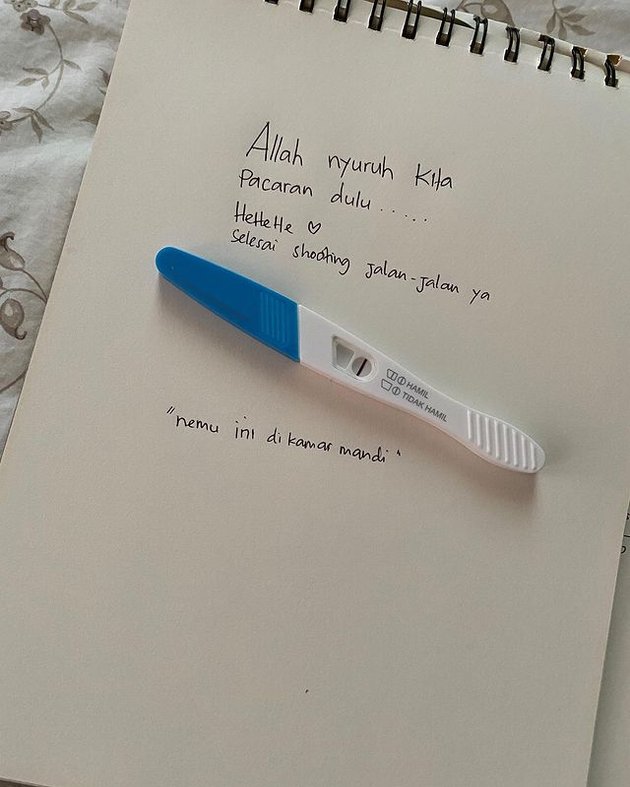 Allah nyuruh kita
Pacaran dulu.....
HeHeHe ♡
Selesai shooting jalan-jalan ya
HAMIL
TIDAK HAMIL
"nemu ini di kamar mandi"